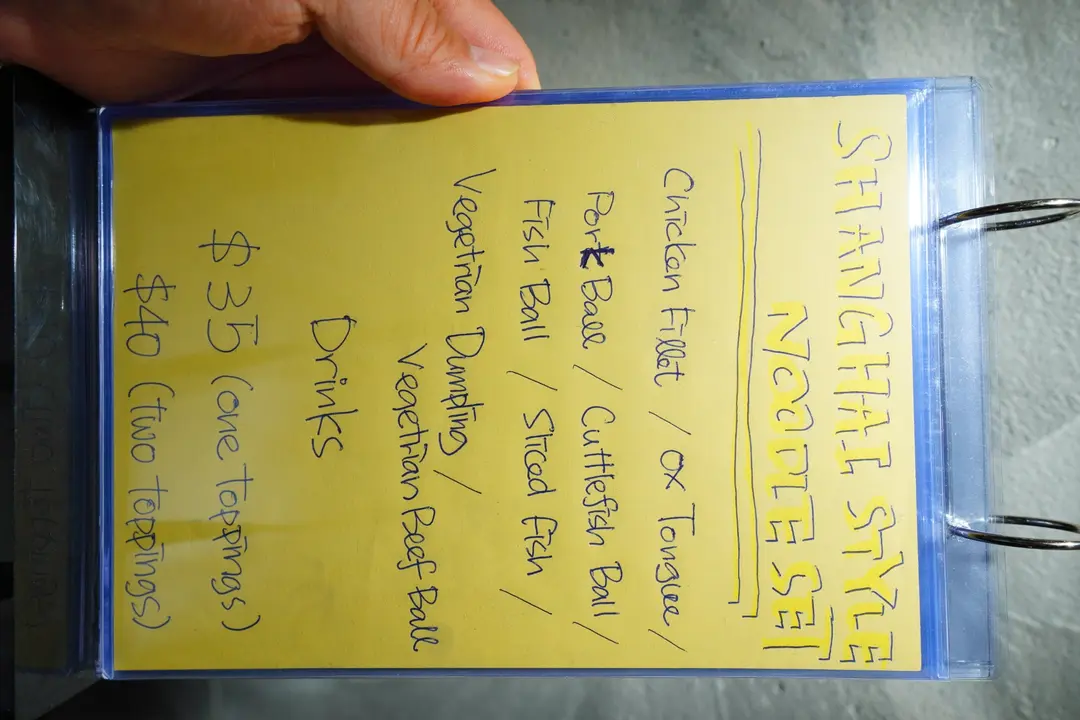 SHANGHAI STYLE
NOODLE SET
Chicken Fillet / Ox Tonguee /
Pork Ball / Cuttlefish Ball /
Fish Ball / Sliced fish /
Vegetrian Dumpling /
Vegetrian Beef Ball
Drinks
$35 (one toppings)
$40 (two toppings)